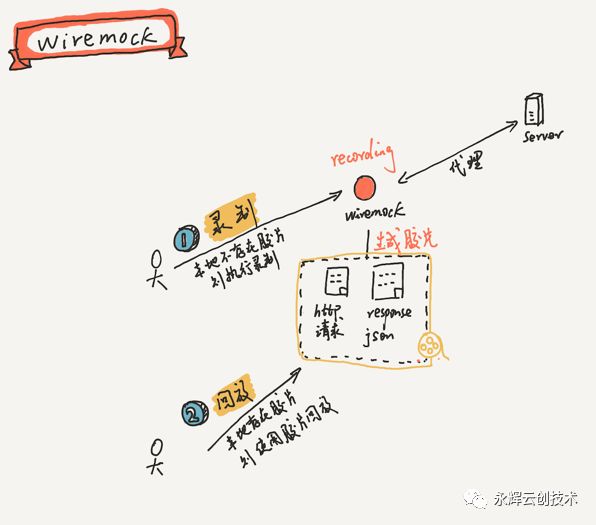 wiremock
server
recording
代理
wiremock
1
录制
本地不存在胶片
则执行录制
生成胶片
http
请求
response
json
2
回放
本地存在胶片
则使用胶片回放
永辉云创技术